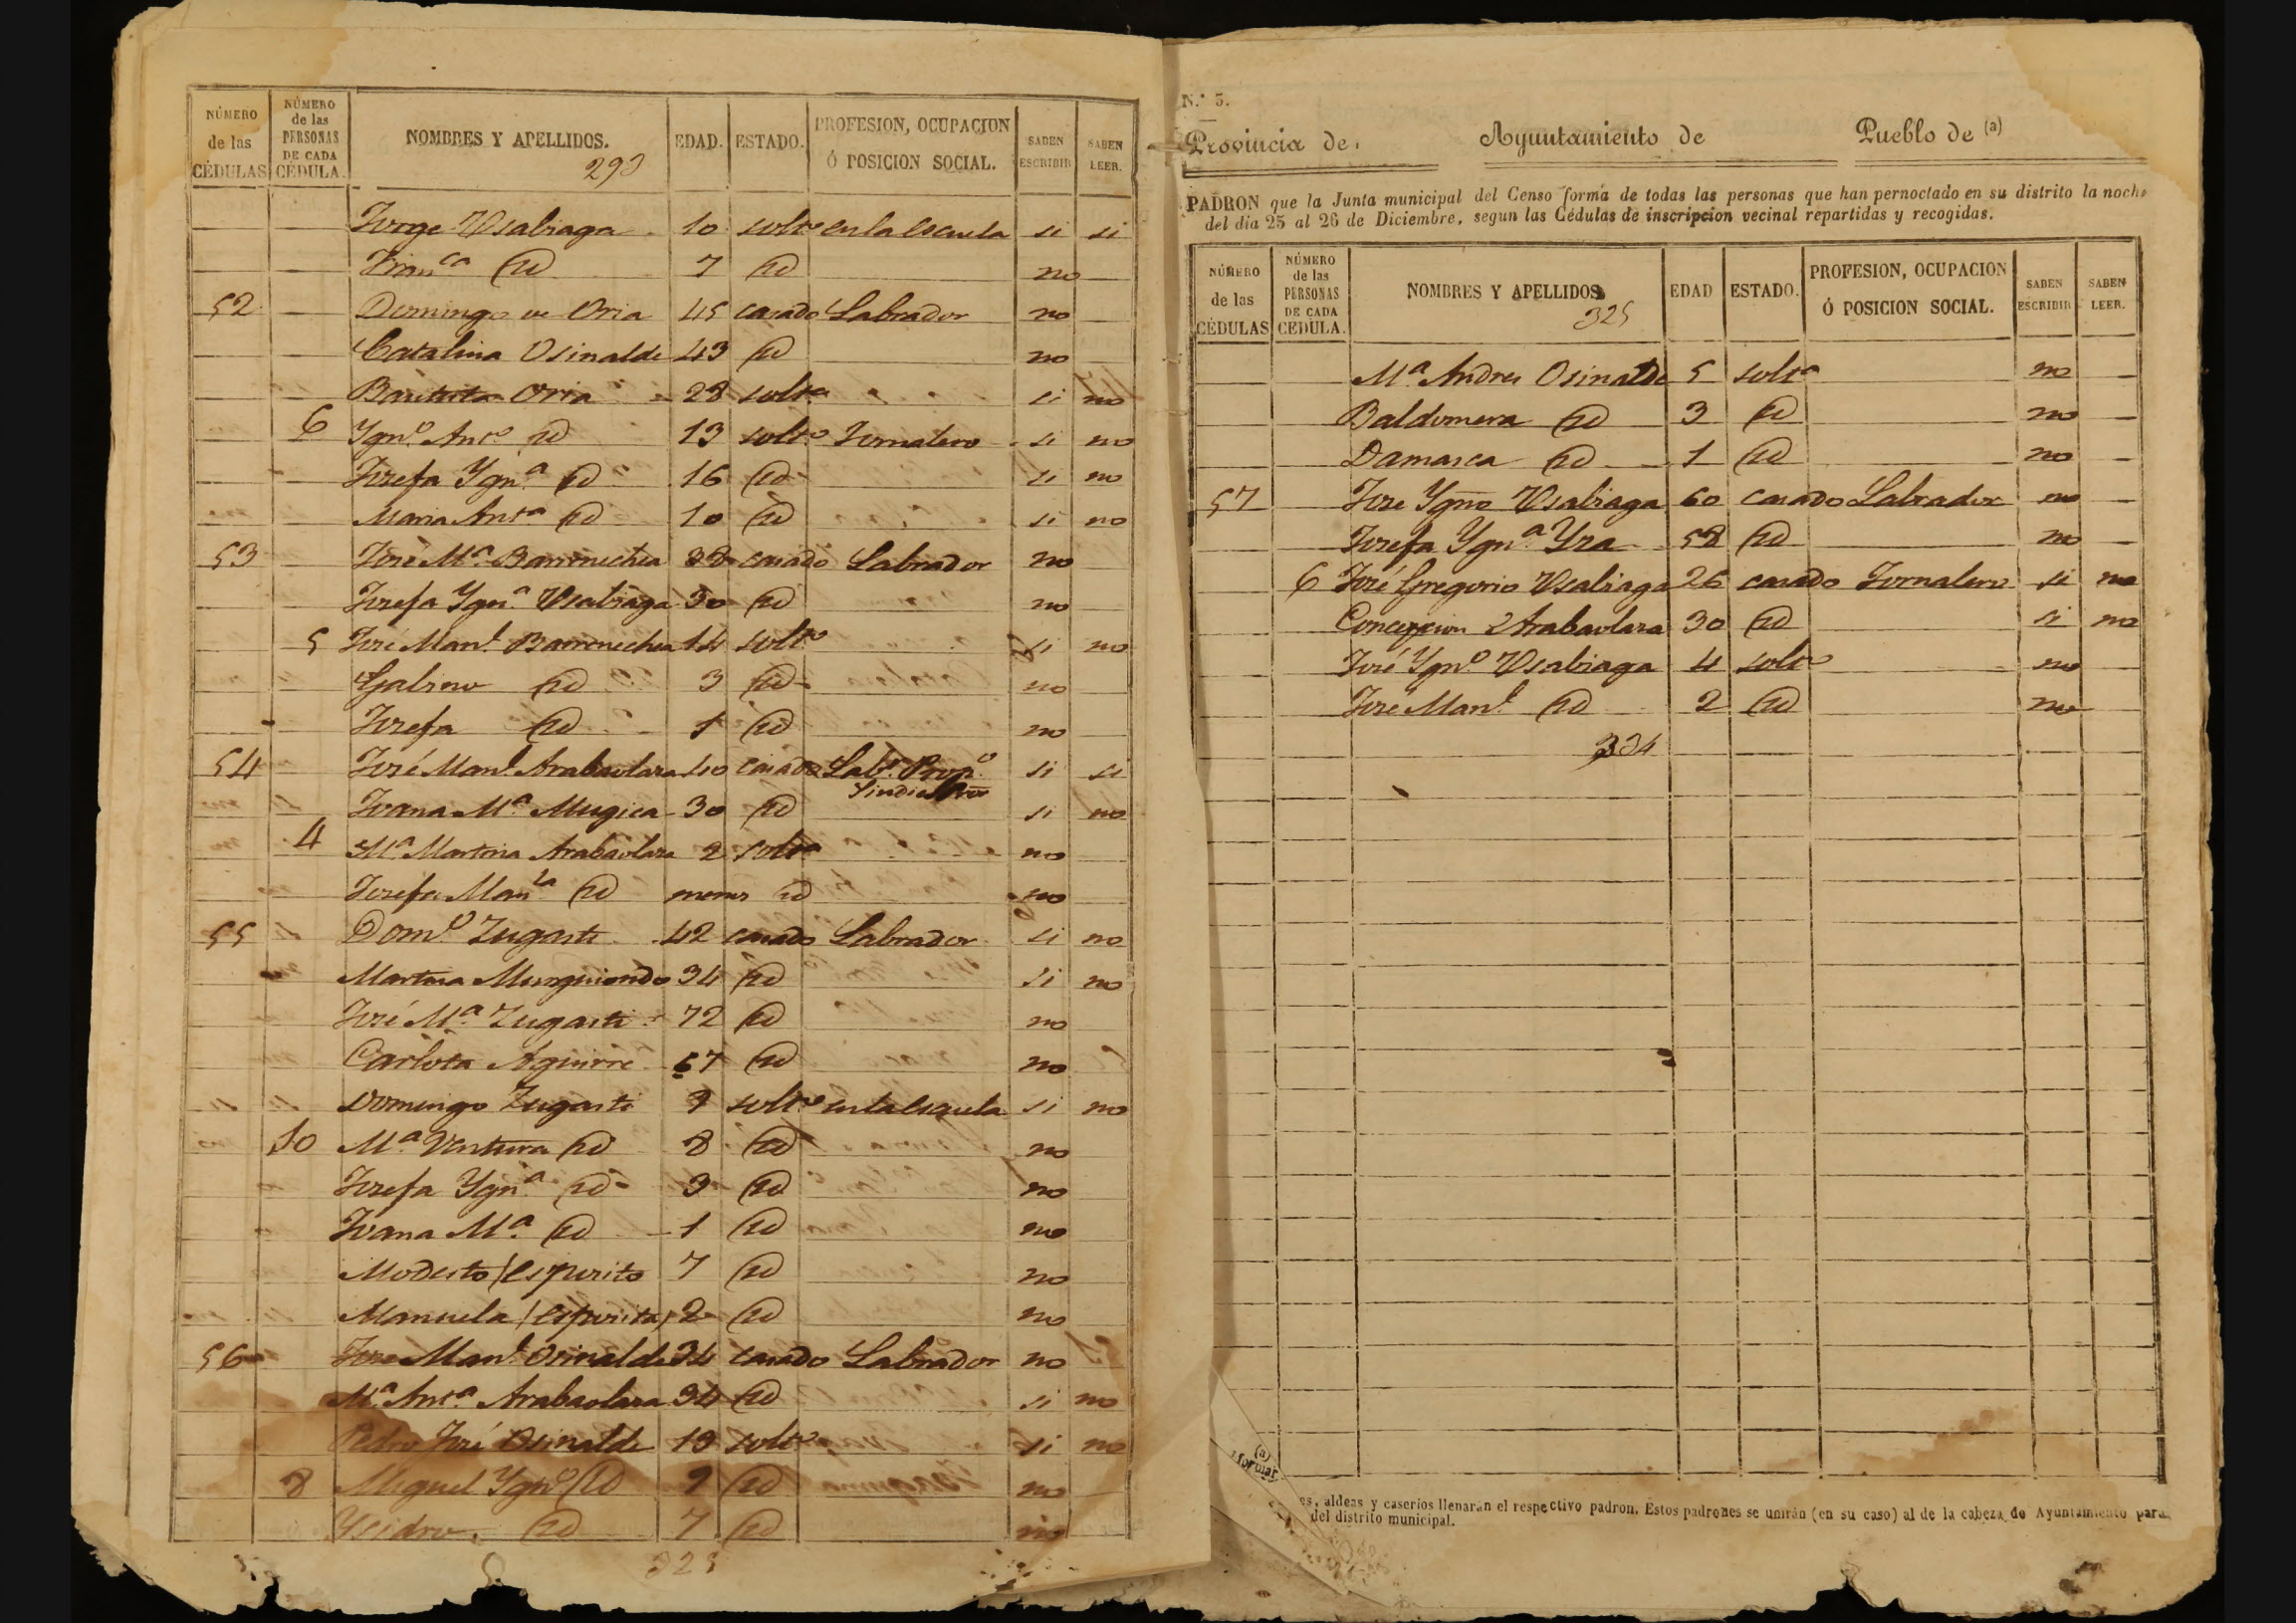 NÚMERO de las CÉDULAS | NÚMERO de las PERSONAS DE CADA CÉDULA. | NOMBRES Y APELLIDOS. | EDAD. | ESTADO. | PROFESION, OCUPACION Ó POSICION SOCIAL. | SABEN ESCRIBIR | SABEN LEER.
293
Jorge Usabiaga 10 solto en la escuela si si
Franca id 7 id no
52 Domingo de Oria 45 casado Labrador no
Catalina Osinalde 43 id no
Bautista Oria 28 solta si no
6 Ygno Anto id 13 solto Jornalero si no
Josefa Ygna id 16 id si no
Maria Anta id 10 id si no
53 José Ma Barrenechea 38 casado Labrador no
Josefa Ygna Usabiaga 30 id no
5 José Manl Barrenechea 14 solto si no
Gabino id 3 id no
Josefa id 1 id no
54 José Manl Arabaolaza 40 casado Labr Propo si si
Sindico
Juana Ma Mugica 30 id si no
4 Ma Martina Arabaolaza 2 solta no
Josefa Manla id menor id no
55 Domo Zugasti 42 casado Labrador si no
Martina Murguiondo 34 id si no
José Ma Zugasti 72 id no
Carlota Aguirre 67 id no
Domingo Zugasti 9 solto en la esquela si no
10 Ma Ventura id 8 id no
Josefa Ygna id 3 id no
Juana Ma id 1 id no
Modesto (espurito 7 id no
Manuela (espurita) 2 id no
56 Jose Manl Osinalde 34 casado Labrador no
Ma Anta Arabaolaza 34 id si no
Pedro José Osinalde 13 solto si no
8 Miguel Ygno id 9 id no
Ysidro id 7 id no
325
N.º 3.
Provincia de Ayuntamiento de Pueblo de (a)
PADRON que la Junta municipal del Censo forma de todas las personas que han pernoctado en su distrito la noche
del dia 25 al 26 de Diciembre, segun las Cédulas de inscripcion vecinal repartidas y recogidas.
NÚMERO de las CÉDULAS | NÚMERO de las PERSONAS DE CADA CEDULA. | NOMBRES Y APELLIDOS | EDAD | ESTADO. | PROFESION, OCUPACION Ó POSICION SOCIAL. | SABEN ESCRIBIR | SABEN LEER.
325
Ma Andrea Osinalde 5 solta no
Baldomera id 3 id no
Damasca id 1 id no
57 Jose Ygno Usabiaga 60 casado Labrador no
Josefa Ygna Yza 58 id no
6 José Gregorio Usabiaga 26 casado Jornalero si no
Concepcion Arabaolaza 30 id si no
José Ygno Usabiaga 4 solto no
José Manl id 2 id no
334
(a)
es, aldeas y caserios llenarán el respectivo padron. Estos padrones se unirán (en su caso) al de la cabeza de Ayuntamiento para
del distrito municipal.